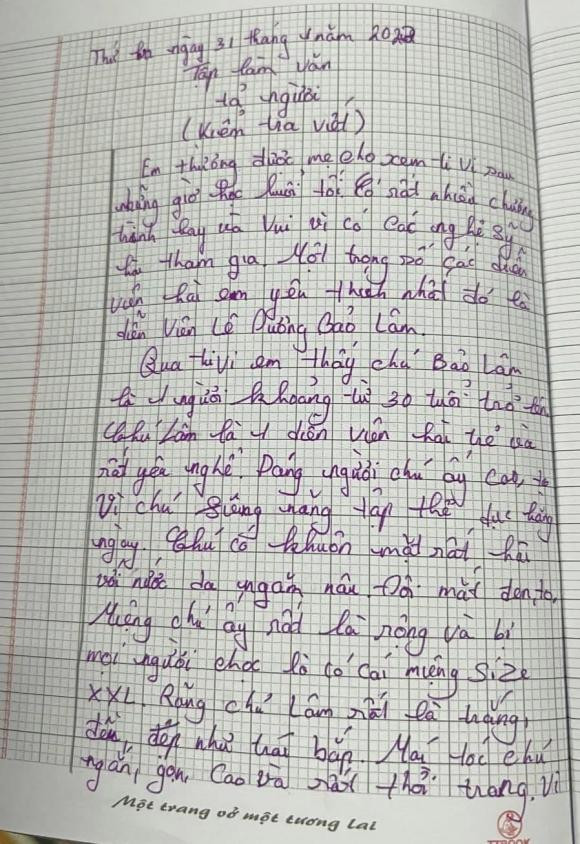 Thứ ba ngày 31 tháng 1 năm 2022
Tập làm văn
tả người
(Kiểm tra viết)
Em thường được mẹ cho xem ti vi sau
những giờ học buổi tối. Có rất nhiều chương
trình hay và vui vì có các nghệ sỹ
hài tham gia. Một trong số các diễn
viên hài em yêu thích nhất đó là
diễn viên Lê Dương Bảo Lâm.
Qua ti vi em thấy chú Bảo Lâm
là 1 người khoảng từ 30 tuổi trở lên.
Chú Lâm là 1 diễn viên hài trẻ và
rất yêu nghề. Dáng người chú ấy cao, to
vì chú siêng năng tập thể dục hằng
ngày. Chú có khuôn mặt rất hài
với nước da ngăm nâu. Đôi mắt đen, to.
Miệng chú ấy rất là rộng và bị
mọi người chọc là có cái miệng size
XXL. Răng chú Lâm rất là trắng,
đều, đẹp như trái bắp. Mái tóc chú
ngắn, gọn, cao và rất thời trang. Vì
Một trang vở một tương lai
TTBOOK